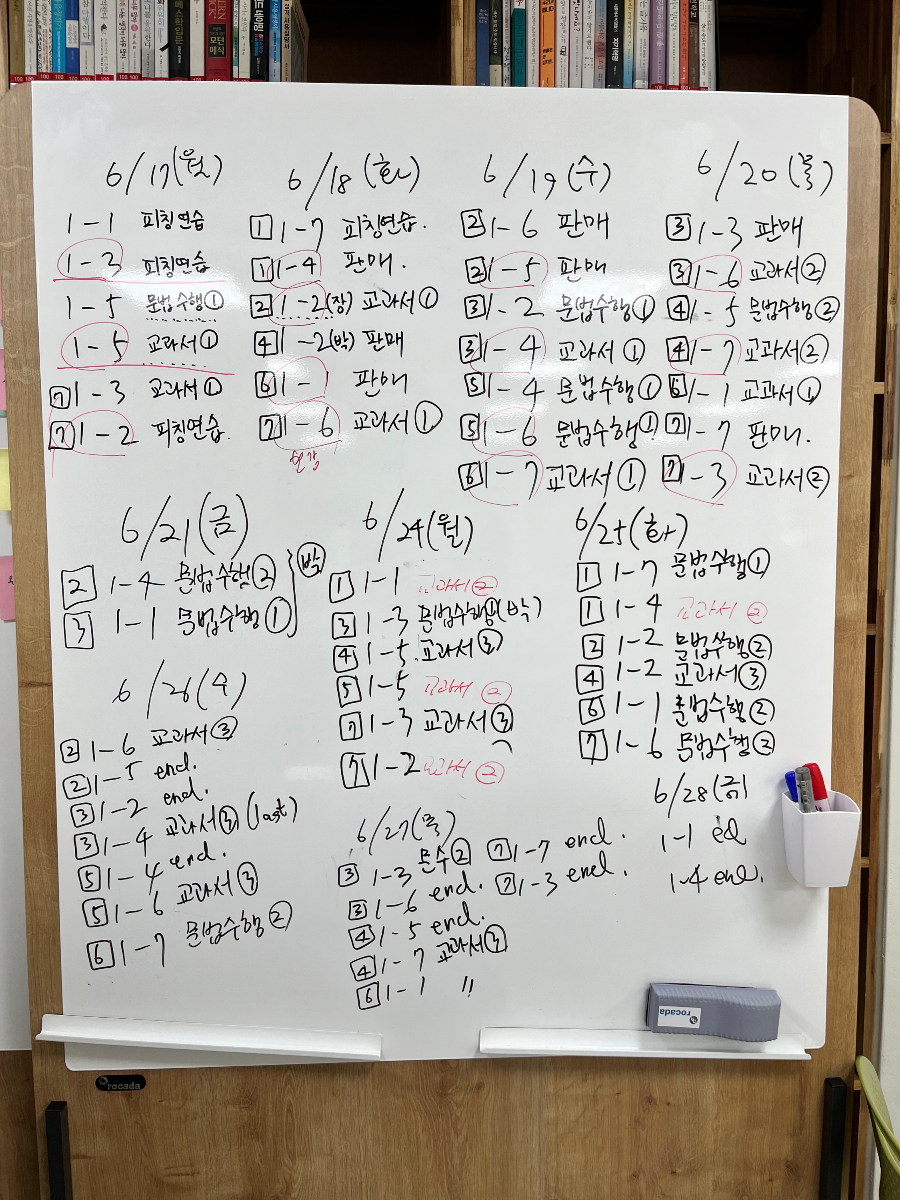 6/17(월)
1-1 피칭연습
1-3 피칭연습
1-5 문법수행①
1-5 교과서①
7 1-3 교과서①
7 1-2 피칭연습.
6/18(화)
1 1-7 피칭연습.
1 1-4 판매.
2 1-2(장) 교과서①
4 1-2(박) 판매
6 1-1 판매
7 1-6 교과서①
6/19(수)
2 1-6 판매
2 1-5 판매
3 1-2 문법수행①
3 1-4 교과서①
5 1-4 문법수행①
5 1-6 문법수행①
6 1-7 교과서①
6/20(목)
3 1-3 판매
3 1-6 교과서②
4 1-5 문법수행②
4 1-7 교과서②
6 1-1 교과서①
7 1-7 판매.
7 1-3 교과서②
6/21(금)
2 1-4 문법수행②
3 1-1 문법수행①
박
6/24(월)
1 1-1 교과서②
3 1-3 문법수행①(박)
4 1-5 교과서③
5 1-5 교과서②
7 1-3 교과서③
7 1-2 교과서②
6/25(화)
1 1-7 문법수행①
1 1-4 교과서②
2 1-2 문법수행②
4 1-2 교과서③
6 1-1 문법수행②
7 1-6 문법수행②
6/26(수)
2 1-6 교과서③
2 1-5 end.
3 1-2 end.
3 1-4 교과서③(last)
5 1-4 end.
5 1-6 교과서③
6 1-7 문법수행②
6/27(목)
3 1-3 문수②
3 1-6 end.
4 1-5 end.
4 1-7 교과서③
6 1-1 〃
7 1-7 end.
7 1-3 end.
6/28(금)
1-1 ed
1-4 end.
rocada
rocada